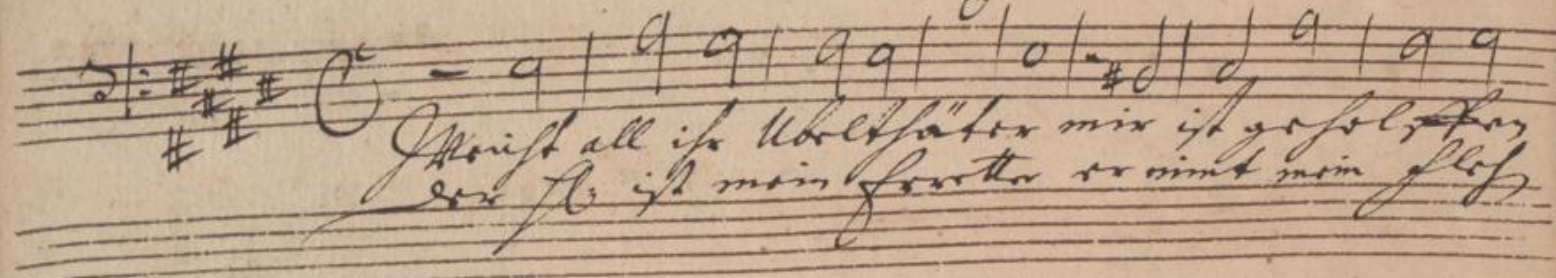 Weicht all ihr Ubelthäter mir ist geholffen
der H. ist mein Erretter er nimt mein Flehn